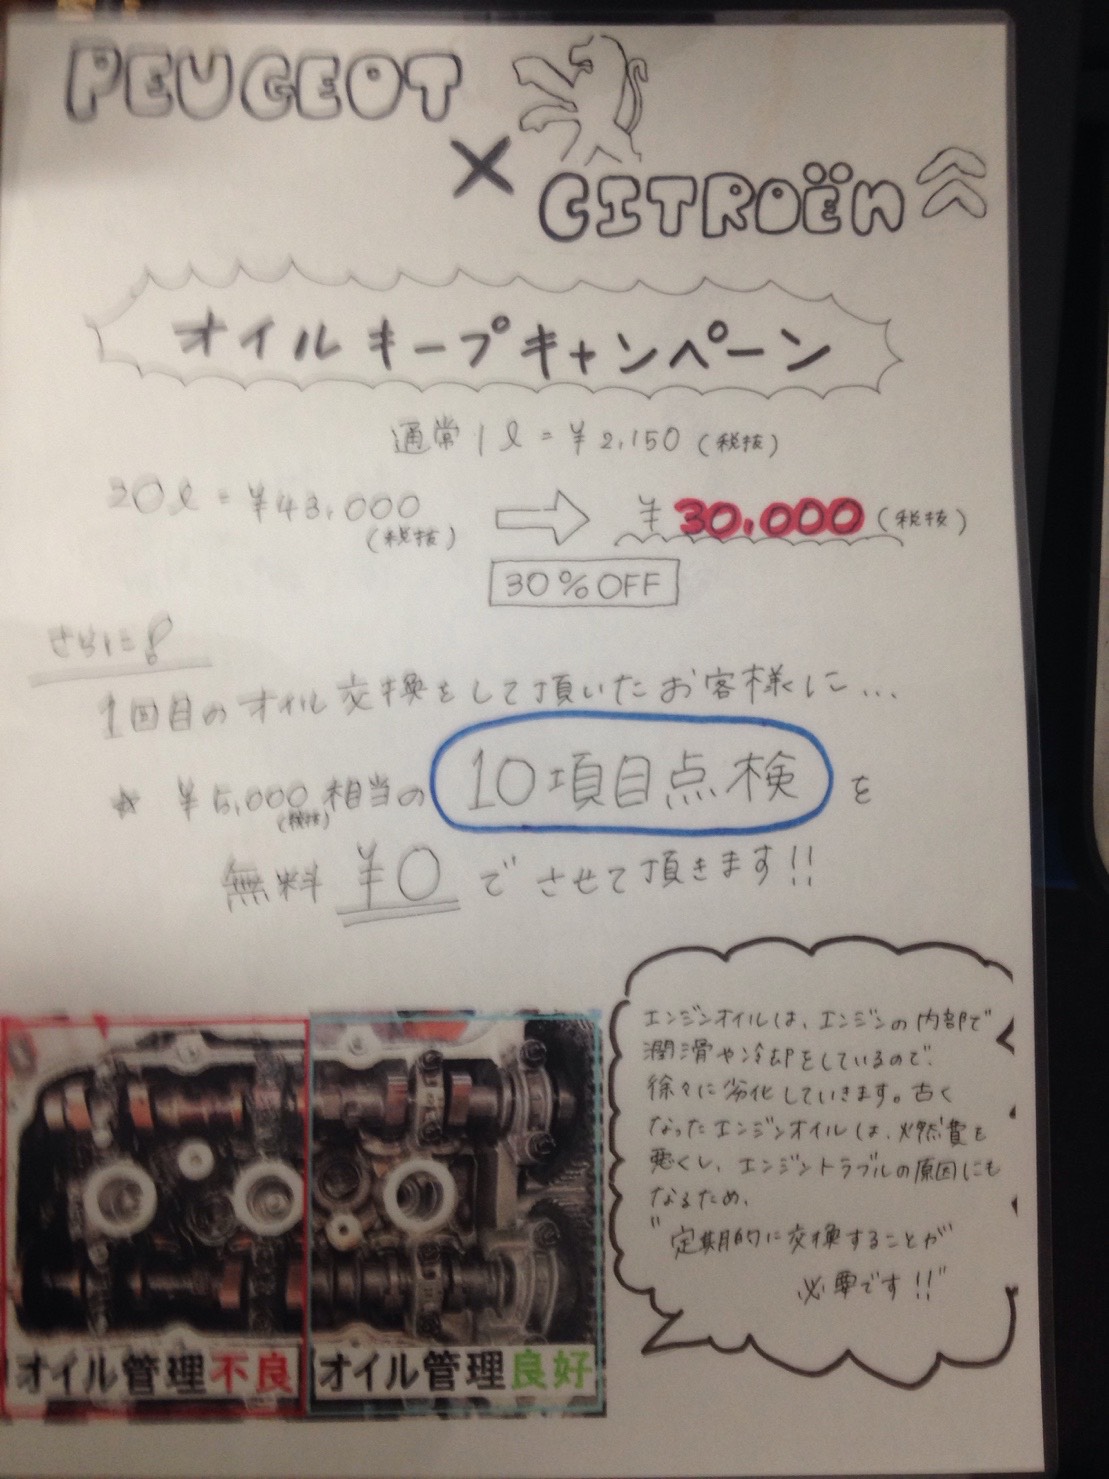 PEUGEOT
×
CITROËN
オイルキープキャンペーン
通常1ℓ=¥2,150(税抜)
20ℓ=¥43,000
(税抜)
¥30,000(税抜)
30%OFF
さらに!
1回目のオイル交換をして頂いたお客様に...
☆ ¥5,000相当の 10項目点検 を
(税抜)
無料 ¥0 でさせて頂きます!!
エンジンオイルは、エンジンの内部で
潤滑や冷却をしているので、
徐々に劣化していきます。古く
なったエンジンオイルは、燃費を
悪くし、エンジントラブルの原因にも
なるため、
"定期的に交換することが
必要です!!"
オイル管理不良
オイル管理良好